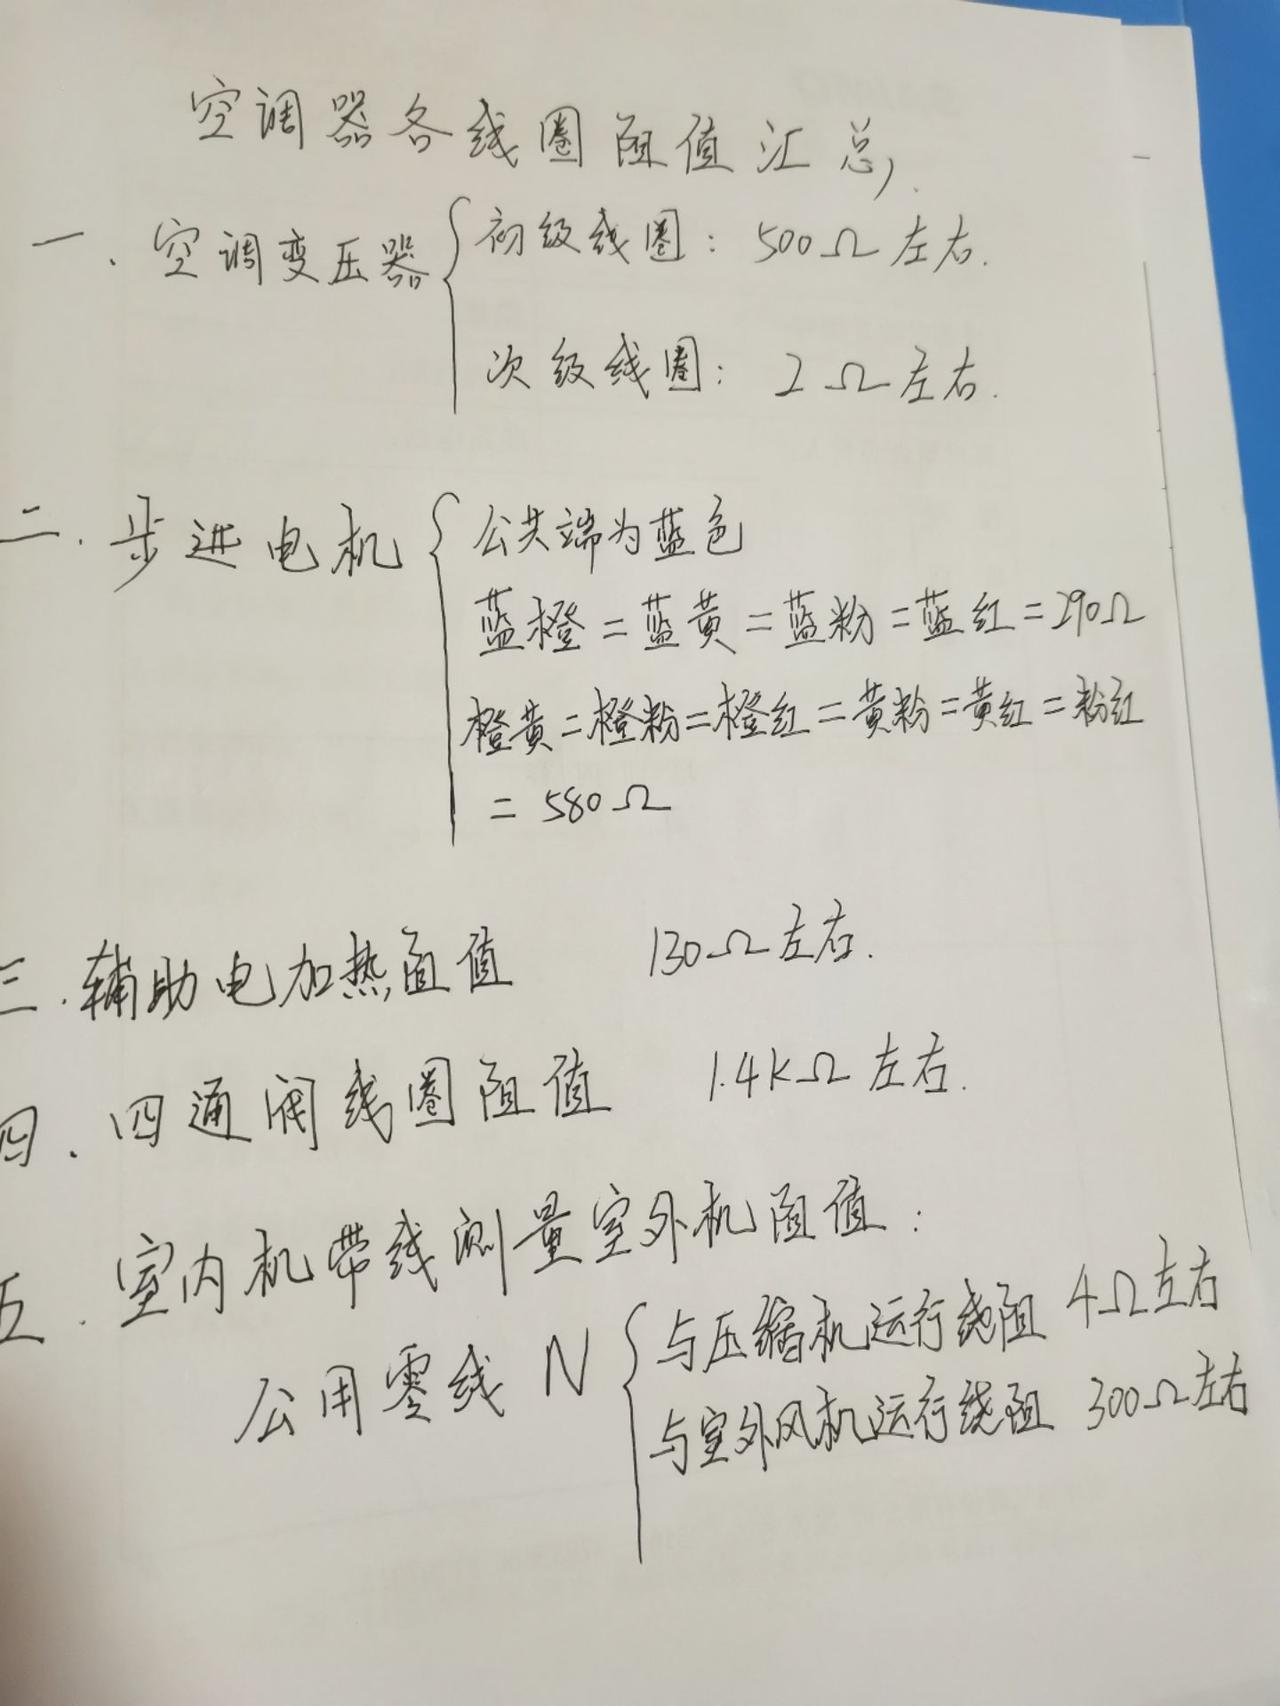 空调器各线圈阻值汇总
一、空调变压器 初级线圈：500Ω左右.
次级线圈：2Ω左右.
二. 步进电机 公共端为蓝色
蓝橙=蓝黄=蓝粉=蓝红=290Ω
橙黄=橙粉=橙红=黄粉=黄红=粉红
=580Ω
三.辅助电加热阻值 130Ω左右.
四、四通阀线圈阻值 1.4KΩ左右.
五、室内机带线测量室外机阻值：
公用零线N 与压缩机运行绕阻 4Ω左右
与室外风机运行绕阻 300Ω左右